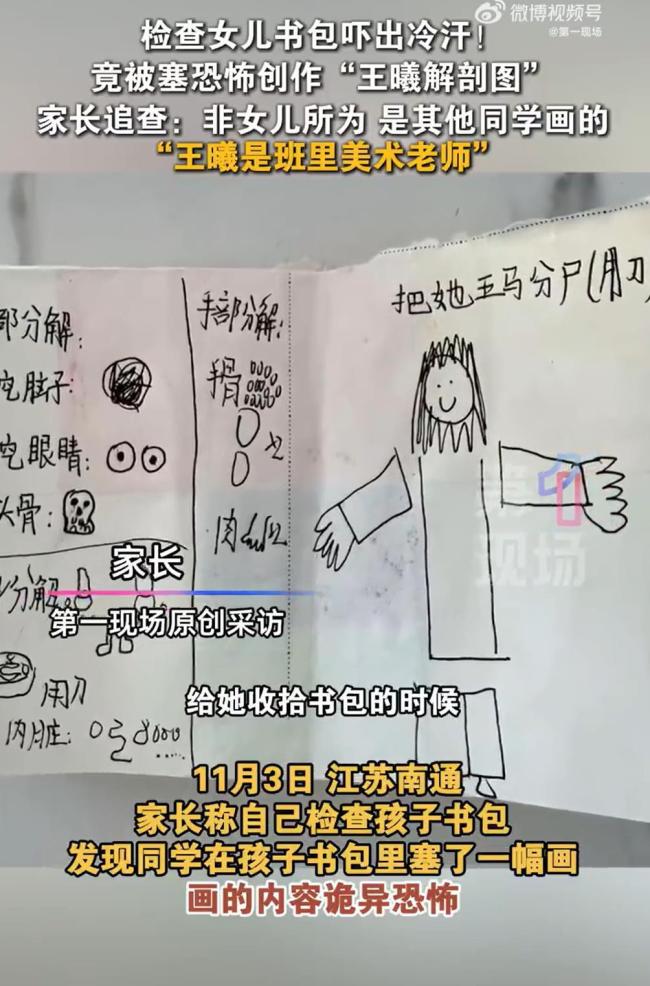 微博视频号
@第一现场
检查女儿书包吓出冷汗！
竟被塞恐怖创作“王曦解剖图”
家长追查：非女儿所为 是其他同学画的
“王曦是班里美术老师”
把她五马分尸(用刀)
部分解：
吃脑子：
吃眼睛：
头骨：
分解
用刀
内脏：
手部分解：
手骨
肉
第一现场
家长
第一现场原创采访
给她收拾书包的时候
11月3日 江苏南通
家长称自己检查孩子书包
发现同学在孩子书包里塞了一幅画
画的内容诡异恐怖